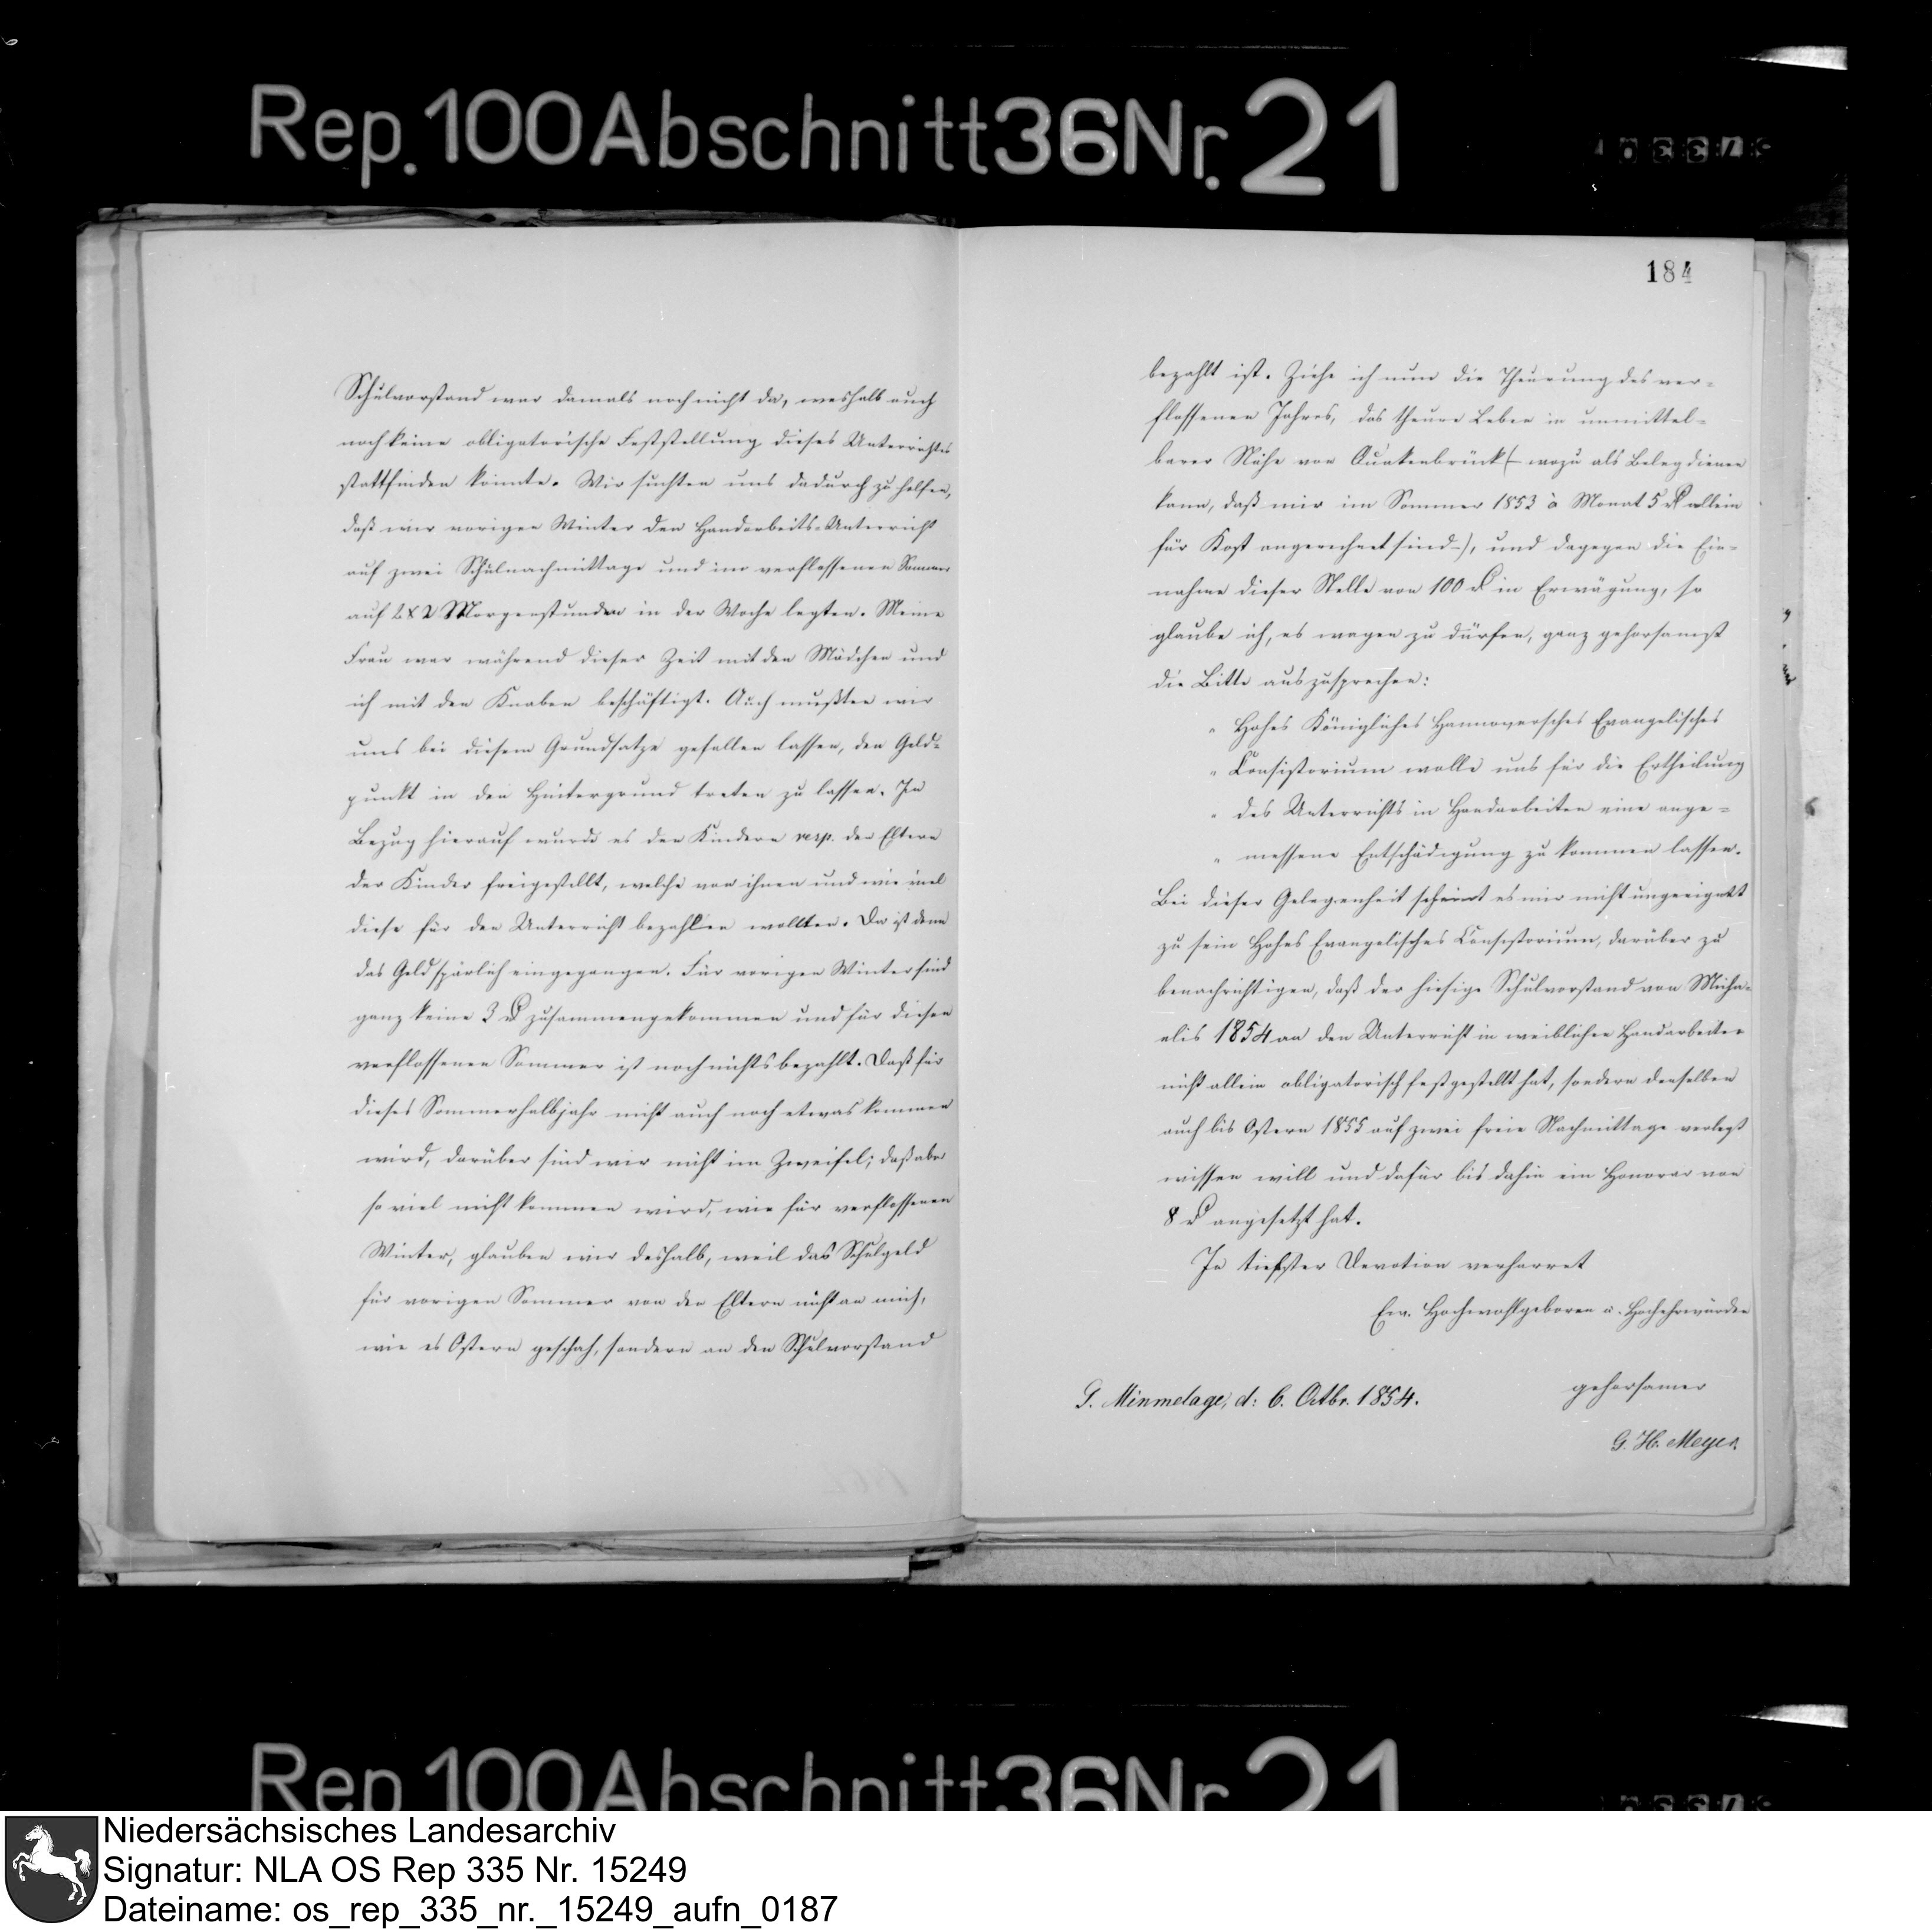 Rep. 100 Abschnitt 36 Nr. 21
Schulvorstand war damals noch nicht da, weshalb auch
noch keine obligatorische Feststellung dieses Unterrichtes
stattfinden könnte. Wir suchten uns dadurch zu helfen,
daß wir vorigen Winter den Handarbeits-Unterricht
auf zwei Schulnachmittage und im verflossenen Sommer
auf 2 x 2 Morgenstunden in der Woche legten. Meine
Frau war während dieser Zeit mit den Mädchen und
ich mit den Knaben beschäftigt. Auch mußten wir
uns bei diesem Grundsatze gefallen lassen, den Geld-
punkt in den Hintergrund treten zu lassen. In
Bezug hierauf wurde es den Kindern resp. den Eltern
der Kinder freigestellt, welche von ihnen und wie viel
diese für den Unterricht bezahlen wollten. Da ist denn
das Geld spärlich eingegangen. Für vorigen Winter sind
ganz keine 3 rℓ zusammengekommen und für diesen
verflossenen Sommer ist noch nichts bezahlt. Daß für
dieses Sommerhalbjahr nicht auch noch etwas kommen
wird, darüber sind wir nicht im Zweifel; daß aber
so viel nicht kommen wird, wie für verflossenen
Winter, glauben wir deshalb, weil das Schulgeld
für vorigen Sommer von den Eltern nicht an mich,
wie es Ostern geschah, sondern an den Schulvorstand
184
bezahlt ist. Ziehe ich nun die Theurung des ver-
flossenen Jahres, das theure Leben in unmittel-
barer Nähe von Quakenbrück (- wozu als Beleg dienen
kann, daß mir im Sommer 1853 à Monat 5 rℓ allein
für Kost angerechnet sind -), und dagegen die Ein-
nahme dieser Stelle von 100 rℓ in Erwägung, so
glaube ich, es wagen zu dürfen, ganz gehorsamst
die Bitte auszusprechen:
" Hohes Königliches Hannoversches Evangelisches
" Consistorium wolle uns für die Ertheilung
" des Unterrichts in Handarbeiten eine ange-
" messene Entschädigung zu kommen lassen.
Bei dieser Gelegenheit scheint es mir nicht ungeeignet
zu sein Hohes Evangelisches Consistorium, darüber zu
benachrichtigen, daß der hiesige Schulvorstand von Micha-
elis 1854 an den Unterricht in weiblichen Handarbeiten
nicht allein obligatorisch festgestellt hat, sondern denselben
auch bis Ostern 1855 auf zwei freie Nachmittage verlegt
wissen will und dafür bis dahin ein Honorar von
8 rℓ angesetzt hat.
In tiefster Devotion verharret
Ew. Hochwohlgeboren u. Hochehrwürden
gehorsamer
G. Minmelage, d: 6. Octbr. 1854.
G. H. Meyer
Rep 100 Abschnitt 36 Nr 21
Niedersächsisches Landesarchiv
Signatur: NLA OS Rep 335 Nr. 15249
Dateiname: os_rep_335_nr._15249_aufn_0187